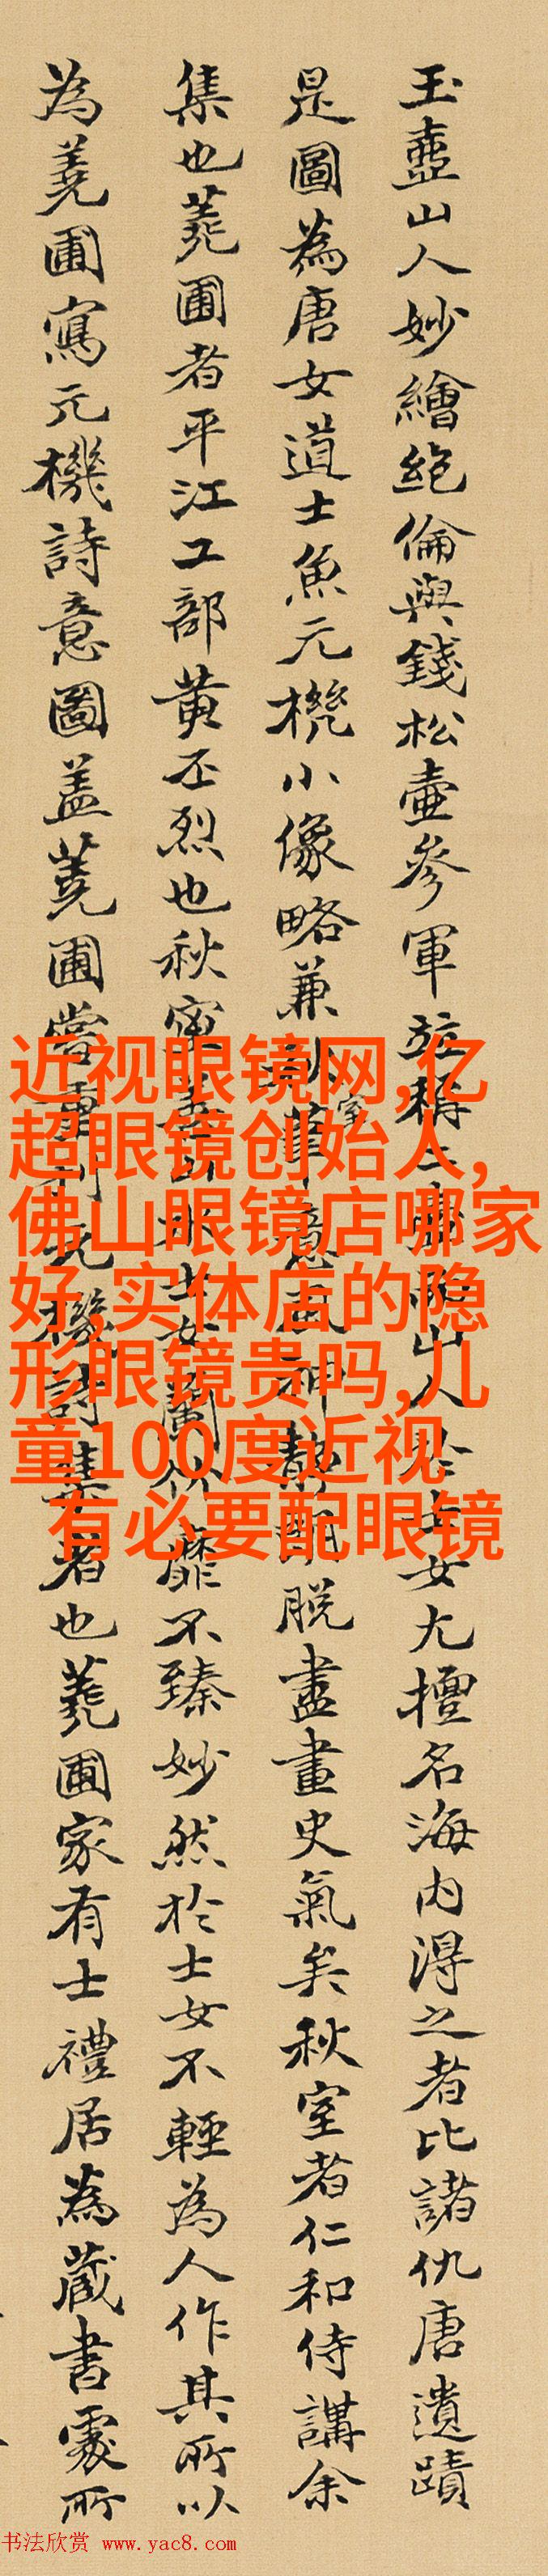 玉壺山人妙繪絶倫與錢松壺參軍並稱二壺山人於士女尤擅名海内得之者比諸仇唐遺蹟
是圖為唐女道士魚元機小像略兼秋室筆意神靜朗脱盡畫史氣矣秋室者仁和侍講余
集也蕘圃者平江工部黄丕烈也秋室善山水士女蘭竹靡不臻妙然於士女不輕為人作其所以
為蕘圃寫元機詩意圖盖蕘圃嘗重刊元機詩集者也蕘圃家有士禮居為藏書處所
近视眼镜网,亿
超眼镜创始人,
佛山眼镜店哪家
好,实体店的隐
形眼镜贵吗,儿
童100度近视
有必要配眼镜
书法欣赏 www.yac8.com